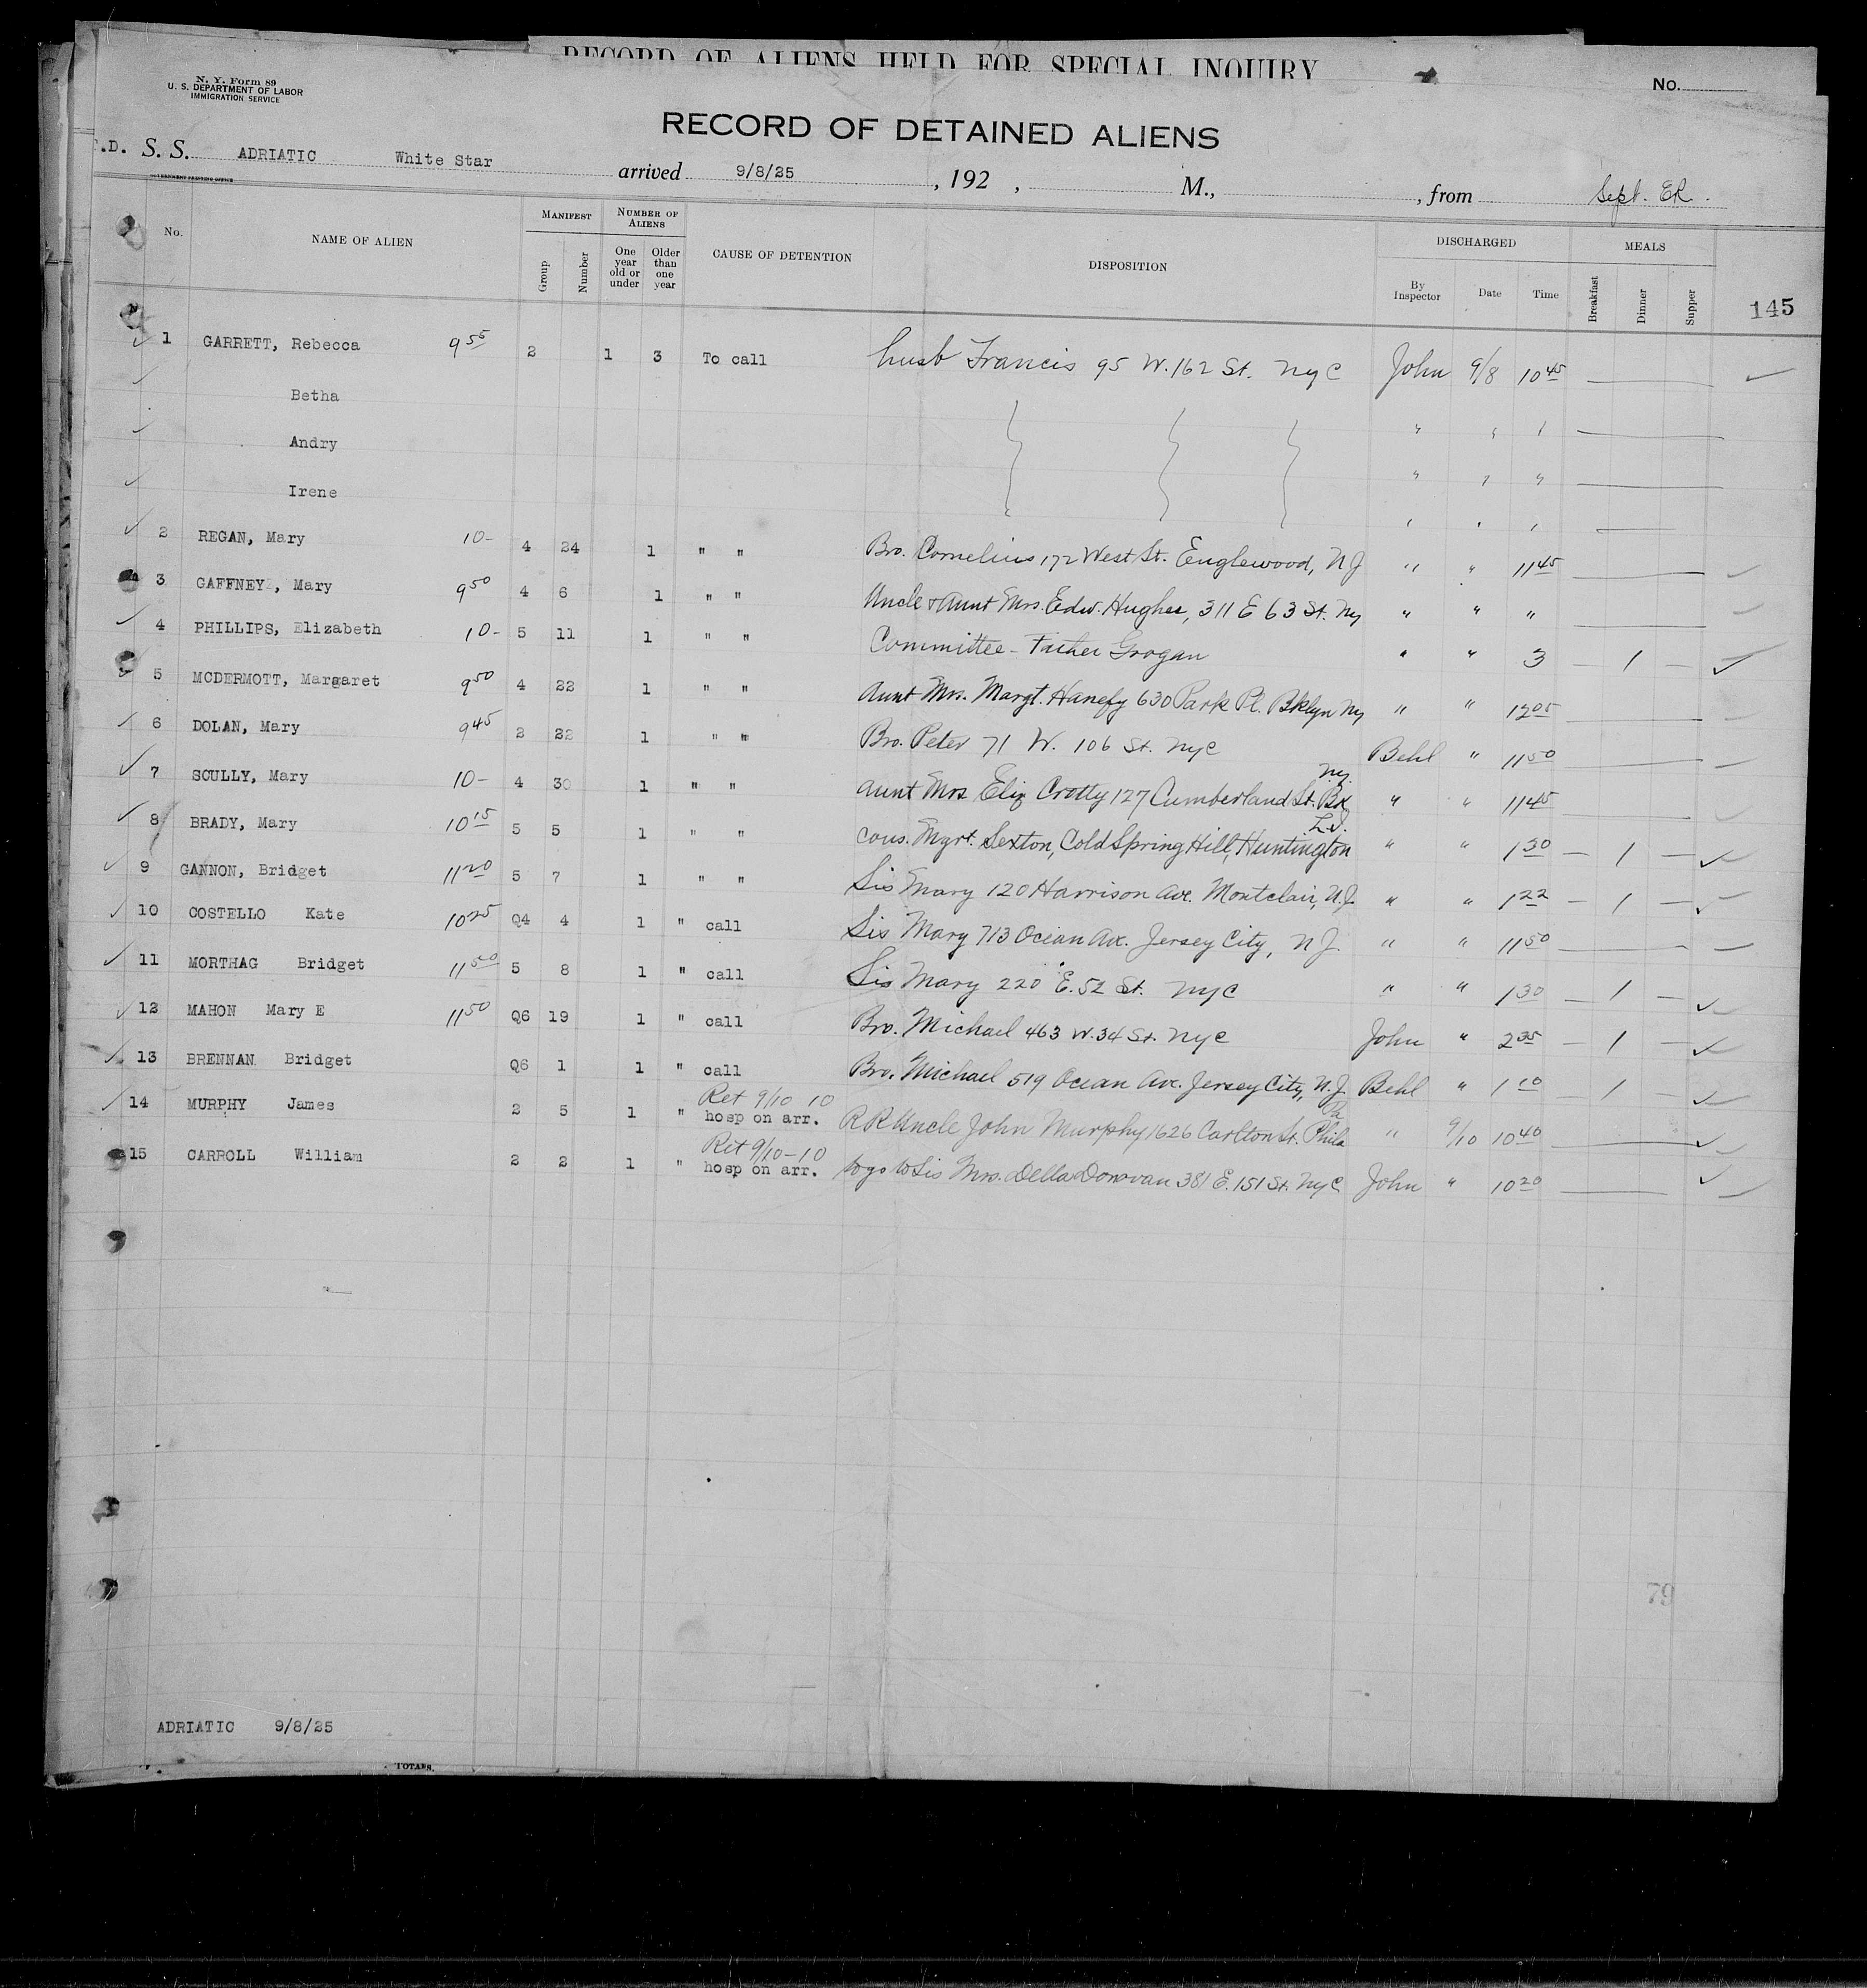 RECORD OF ALIENS HELD FOR SPECIAL INQUIRY
N. Y. Form 89
U. S. DEPARTMENT OF LABOR
IMMIGRATION SERVICE
No.
RECORD OF DETAINED ALIENS
.D. S. S. ADRIATIC White Star arrived 9/8/25 , 192 , M., , from Sept. ER.
GOVERNMENT PRINTING OFFICE
No. NAME OF ALIEN MANIFEST Group Number NUMBER OF ALIENS One year old or under Older than one year CAUSE OF DETENTION DISPOSITION DISCHARGED By Inspector Date Time MEALS Breakfast Dinner Supper 145
1 GARRETT, Rebecca 9 55 2 1 3 To call husb Francis 95 W. 162 St. NYC John 9/8 10 45
Betha " " "
Andry " " "
Irene " " "
2 REGAN, Mary 10- 4 24 1 " " Bro. Cornelius 172 West St. Englewood, NJ " " 11 45
3 GAFFNEY, Mary 9 50 4 6 1 " " Uncle & Aunt Mrs. Edw. Hughes, 311 E 63 St. Ny " " "
4 PHILLIPS, Elizabeth 10- 5 11 1 " " Committee - Father Grogan " " 3 - 1 -
5 MCDERMOTT, Margaret 9 50 4 22 1 " " Aunt Mrs. Margt. Hanefy 630 Park Pl. Bklyn Ny " " 12 05
6 DOLAN, Mary 9 45 2 22 1 " " Bro. Peter 71 W. 106 St. NYC Behl " 11 50
7 SCULLY, Mary 10- 4 30 1 " " Aunt Mrs Eliz Crotty 127 Cumberland St. Bk Ny. " " 11 45
8 BRADY, Mary 10 15 5 5 1 " " cous. Mgrt. Sexton, Cold Spring Hill, Huntington L.I. " " 1 30 - 1 -
9 GANNON, Bridget 11 20 5 7 1 " " Sis Mary 120 Harrison Ave. Montclair, N.J. " " 1 22 - 1 -
10 COSTELLO Kate 10 25 Q4 4 1 " call Sis Mary 713 Ocean Av. Jersey City, NJ. " " 11 50
11 MORTHAG Bridget 11 50 5 8 1 " call Sis Mary 220 E. 52 St. NYC " " 1 30 - 1 -
12 MAHON Mary E 11 50 Q6 19 1 " call Bro. Michael 463 W. 34 St. NYC John " 2 35 - 1 -
13 BRENNAN Bridget Q6 1 1 " call Bro. Michael 519 Ocean Ave. Jersey City, N.J. Behl " 1 10 - 1 -
Ret 9/10 10
14 MURPHY James 2 5 1 " hosp on arr. RR Uncle John Murphy 1626 Carlton St. Phila Pa " 9/10 10 40
Ret 9/10-10
15 CARROLL William 2 2 1 " hosp on arr. to go to Sis Mrs. Della Donovan 381 E. 151 St. NYC John " 10 20
79
ADRIATIC 9/8/25
TOTALS.